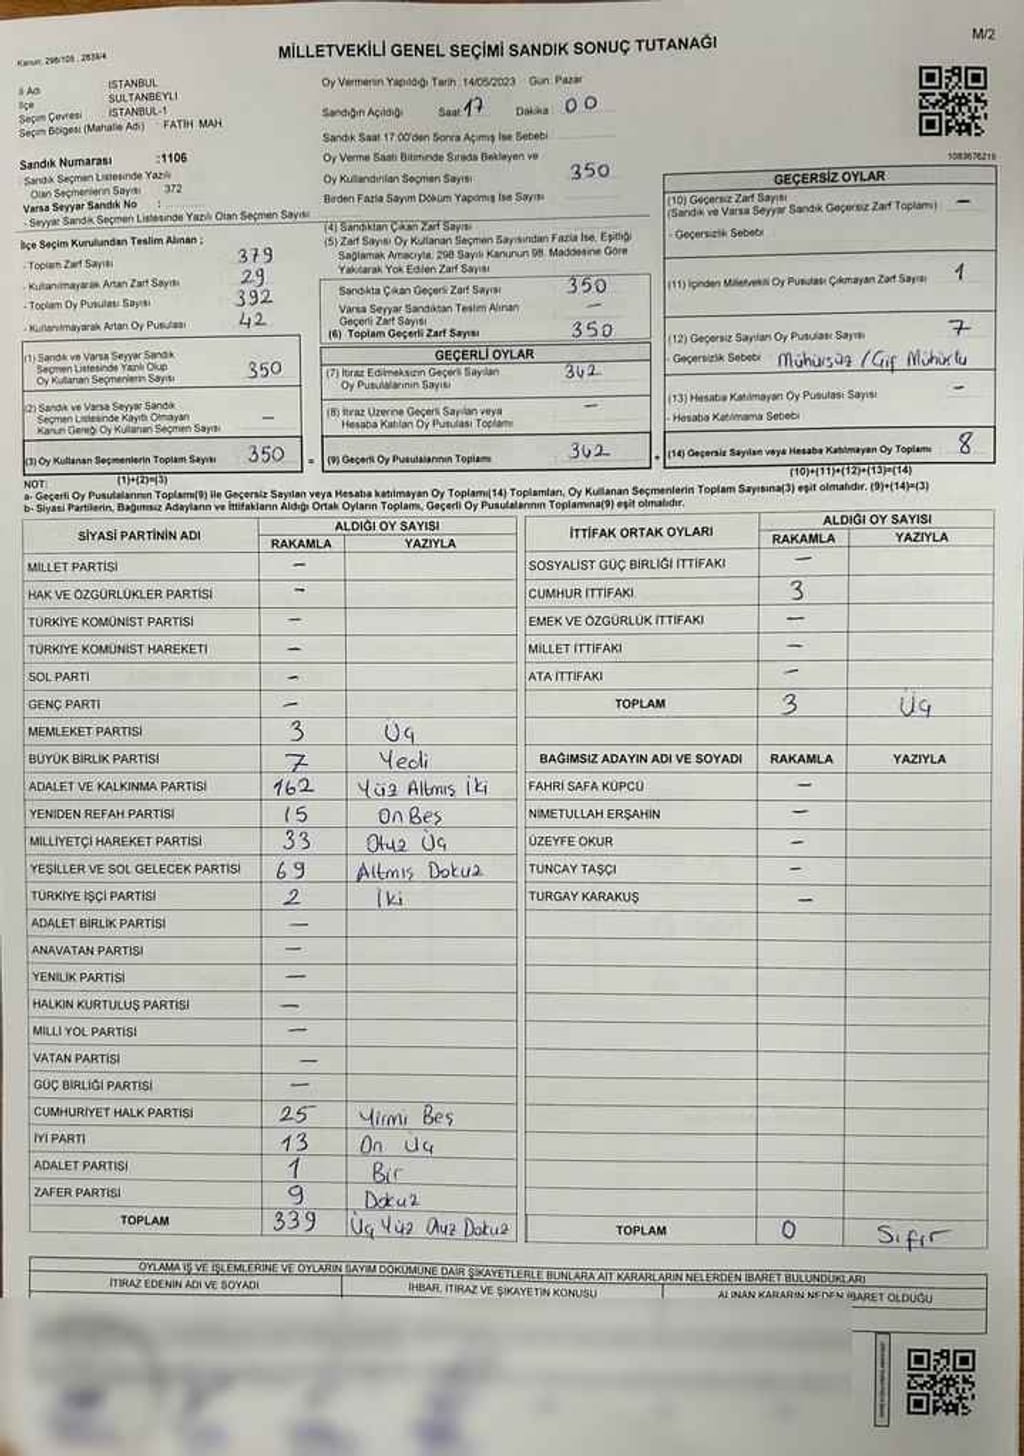 M/2
Kanun: 298/105 , 2839/4
MİLLETVEKİLİ GENEL SEÇİMİ SANDIK SONUÇ TUTANAĞI
İl Adı İSTANBUL
İlçe SULTANBEYLİ
Seçim Çevresi İSTANBUL-1
Seçim Bölgesi (Mahalle Adı) FATİH MAH
Sandık Numarası :1106
Sandık Seçmen Listesinde Yazılı
Olan Seçmenlerin Sayısı 372
Varsa Seyyar Sandık No :
- Seyyar Sandık Seçmen Listesinde Yazılı Olan Seçmen Sayısı
Oy Vermenin Yapıldığı Tarih :14/05/2023 Gün: Pazar
Sandığın Açıldığı Saat 17 Dakika 00
Sandık Saat 17:00'den Sonra Açımış İse Sebebi
Oy Verme Saati Bitiminde Sırada Bekleyen ve
Oy Kullandırılan Seçmen Sayısı 350
Birden Fazla Sayım Döküm Yapılmış İse Sayısı
1083676219
İlçe Seçim Kurulundan Teslim Alınan ;
- Toplam Zarf Sayısı 379
- Kullanılmayarak Artan Zarf Sayısı 29
- Toplam Oy Pusulası Sayısı 392
- Kullanılmayarak Artan Oy Pusulası 42
(1) Sandık ve Varsa Seyyar Sandık
Seçmen Listesinde Yazılı Olup
Oy Kullanan Seçmenlerin Sayısı 350
(2) Sandık ve Varsa Seyyar Sandık
Seçmen Listesinde Kayıtlı Olmayan
Kanun Gereği Oy Kullanan Seçmen Sayısı —
(3) Oy Kullanan Seçmenlerin Toplam Sayısı 350
(1)+(2)=(3)
(4) Sandıktan Çıkan Zarf Sayısı
(5) Zarf Sayısı Oy Kullanan Seçmen Sayısından Fazla İse, Eşitliği
Sağlamak Amacıyla, 298 Sayılı Kanunun 98. Maddesine Göre
Yakılarak Yok Edilen Zarf Sayısı
Sandıkta Çıkan Geçerli Zarf Sayısı 350
Varsa Seyyar Sandıktan Teslim Alınan
Geçerli Zarf Sayısı —
(6) Toplam Geçerli Zarf Sayısı 350
GEÇERLİ OYLAR
(7) İtiraz Edilmeksizin Geçerli Sayılan
Oy Pusulalarının Sayısı 342
(8) İtiraz Üzerine Geçerli Sayılan veya
Hesaba Katılan Oy Pusulası Toplamı —
= (9) Geçerli Oy Pusulalarının Toplamı 342 +
GEÇERSİZ OYLAR
(10) Geçersiz Zarf Sayısı
(Sandık ve Varsa Seyyar Sandık Geçersiz Zarf Toplamı) —
- Geçersizlik Sebebi
(11) İçinden Milletvekili Oy Pusulası Çıkmayan Zarf Sayısı 1
(12) Geçersiz Sayılan Oy Pusulası Sayısı 7
- Geçersizlik Sebebi Mühürsüz / Çif Mühürlü
(13) Hesaba Katılmayan Oy Pusulası Sayısı —
- Hesaba Katılmama Sebebi
(14) Geçersiz Sayılan veya Hesaba Katılmayan Oy Toplamı 8
(10)+(11)+(12)+(13)=(14)
NOT:
a- Geçerli Oy Pusulalarının Toplamı(9) ile Geçersiz Sayılan veya Hesaba katılmayan Oy Toplamı(14) Toplamları, Oy Kullanan Seçmenlerin Toplam Sayısına(3) eşit olmalıdır. (9)+(14)=(3)
b- Siyasi Partilerin, Bağımsız Adayların ve İttifakların Aldığı Ortak Oyların Toplamı, Geçerli Oy Pusulalarının Toplamına(9) eşit olmalıdır.
SİYASİ PARTİNİN ADI ALDIĞI OY SAYISI
RAKAMLA YAZIYLA
MİLLET PARTİSİ —
HAK VE ÖZGÜRLÜKLER PARTİSİ —
TÜRKİYE KOMÜNİST PARTİSİ —
TÜRKİYE KOMÜNİST HAREKETİ —
SOL PARTİ —
GENÇ PARTİ —
MEMLEKET PARTİSİ 3 Üç
BÜYÜK BİRLİK PARTİSİ 7 Yedi
ADALET VE KALKINMA PARTİSİ 162 Yüz Altmış İki
YENİDEN REFAH PARTİSİ 15 On Beş
MİLLİYETÇİ HAREKET PARTİSİ 33 Otuz Üç
YEŞİLLER VE SOL GELECEK PARTİSİ 69 Altmış Dokuz
TÜRKİYE İŞÇİ PARTİSİ 2 İki
ADALET BİRLİK PARTİSİ —
ANAVATAN PARTİSİ —
YENİLİK PARTİSİ —
HALKIN KURTULUŞ PARTİSİ —
MİLLİ YOL PARTİSİ —
VATAN PARTİSİ —
GÜÇ BİRLİĞİ PARTİSİ —
CUMHURİYET HALK PARTİSİ 25 Yirmi Beş
İYİ PARTİ 13 On Üç
ADALET PARTİSİ 1 Bir
ZAFER PARTİSİ 9 Dokuz
TOPLAM 339 Üç Yüz Otuz Dokuz
İTTİFAK ORTAK OYLARI ALDIĞI OY SAYISI
RAKAMLA YAZIYLA
SOSYALİST GÜÇ BİRLİĞİ İTTİFAKI —
CUMHUR İTTİFAKI 3
EMEK VE ÖZGÜRLÜK İTTİFAKI —
MİLLET İTTİFAKI —
ATA İTTİFAKI —
TOPLAM 3 Üç
BAĞIMSIZ ADAYIN ADI VE SOYADI RAKAMLA YAZIYLA
FAHRİ SAFA KÜPCÜ —
NİMETULLAH ERŞAHİN —
ÜZEYFE OKUR —
TUNCAY TAŞÇI —
TURGAY KARAKUŞ —
TOPLAM 0 Sıfır
OYLAMA İŞ VE İŞLEMLERİNE VE OYLARIN SAYIM DÖKÜMÜNE DAİR ŞİKAYETLERLE BUNLARA AİT KARARLARIN NELERDEN İBARET BULUNDUKLARI
İTİRAZ EDENİN ADI VE SOYADI İHBAR, İTİRAZ VE ŞİKAYETİN KONUSU ALINAN KARARIN NEDEN İBARET OLDUĞU